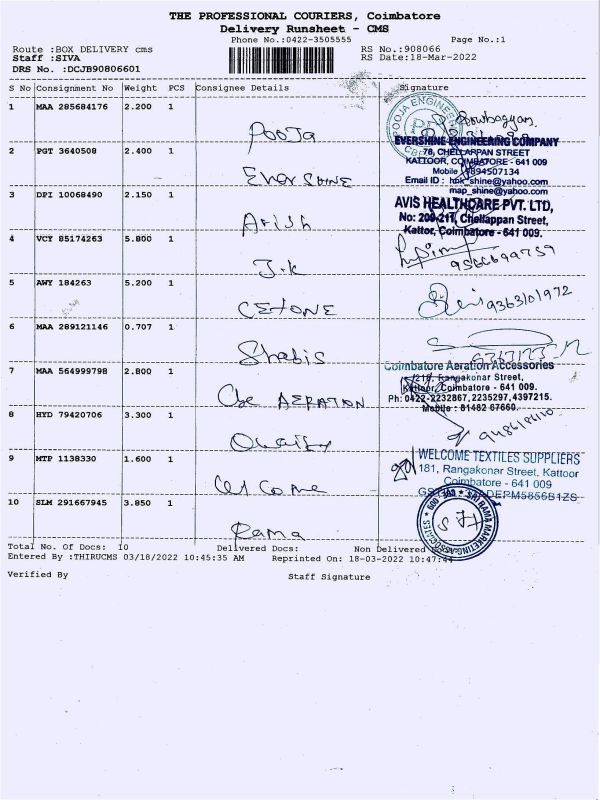 THE PROFESSIONAL COURIERS, Coimbatore
Delivery Runsheet - CMS
Phone No.:0422-3505555 Page No.:1
Route :BOX DELIVERY cms RS No.:908066
Staff :SIVA RS Date:18-Mar-2022
DRS No. :DCJB90806601
S No Consignment No Weight PCS Consignee Details Signature
1 MAA 285684176 2.200 1
POOJA
POOJA ENGINEE
EVERSHINE ENGINEERING COMPANY
2 PGT 3640508 2.400 1
76, CHELLAPPAN STREET
KATTOOR, COIMBATORE - 641 009
Mobile : 9894507134
EVERSHINE
Email ID : hpk_shine@yahoo.com
map_shine@yahoo.com
3 DPI 10068490 2.150 1
AVIS HEALTHCARE PVT. LTD,
No: 209-211, Chellappan Street,
Kattor, Coimbatore - 641 009.
4 VCY 85174263 5.800 1
J.K
5 AWY 184263 5.200 1
9363101972
6 MAA 289121146 0.707 1
7 MAA 564999798 2.800 1
Coimbatore Aeration Accessories
Rangakonar Street,
Kattoor, Coimbatore - 641 009.
Ph: 0422-2232867, 2235297, 4397215.
Cbe AERATION
8 HYD 79420706 3.300 1
9 MTP 1138330 1.600 1
WELCOME TEXTILES SUPPLIERS
181, Rangakonar Street, Kattoor
Coimbatore - 641 009
10 SLM 291667945 3.850 1
SRI RAMA MARKETING ASSOCIATES
Rama
Total No. Of Docs: 10 Delivered Docs: Non Delivered
Entered By :THIRUCMS 03/18/2022 10:45:35 AM Reprinted On: 18-03-2022 10:47:44
Verified By Staff Signature